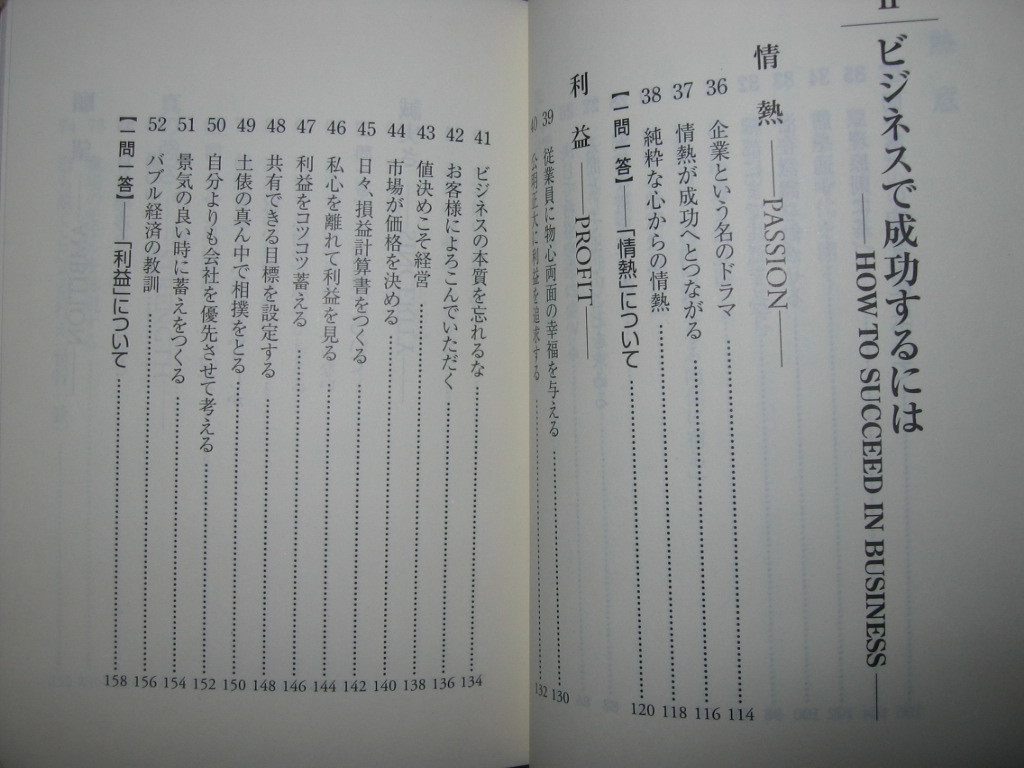 II
ビジネスで成功するには
——HOW TO SUCCEED IN BUSINESS——
情熱——PASSION——
36 企業という名のドラマ 114
37 情熱が成功へとつながる 116
38 純粋な心からの情熱 118
【一問一答】——「情熱」について 120
利益——PROFIT——
39 従業員に物心両面の幸福を与える 130
40 公明正大に利益を追求する 132
41 ビジネスの本質を忘れるな 134
42 お客様によろこんでいただく 136
43 値決めこそ経営 138
44 市場が価格を決める 140
45 日々、損益計算書をつくる 142
46 私心を離れて利益を見る 144
47 利益をコツコツ蓄える 146
48 共有できる目標を設定する 148
49 土俵の真ん中で相撲をとる 150
50 自分よりも会社を優先させて考える 152
51 景気の良い時に蓄えをつくる 154
52 バブル経済の教訓 156
【一問一答】——「利益」について 158